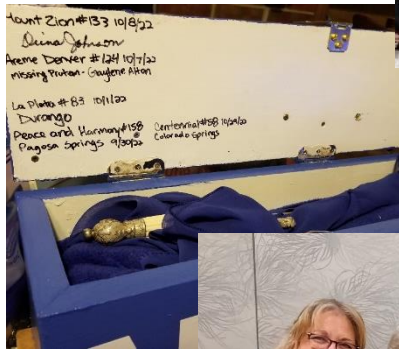 Mount Zion #133 10/8/22
Diina Johnson
Areme Denver #124 10/7/22
missing Proton - Gaylene Alton
La Plata #83 10/1/22
Durango
Peace and Harmony #158 9/30/22
Pagosa Springs
Centennial #58 10/29/22
Colorado Springs